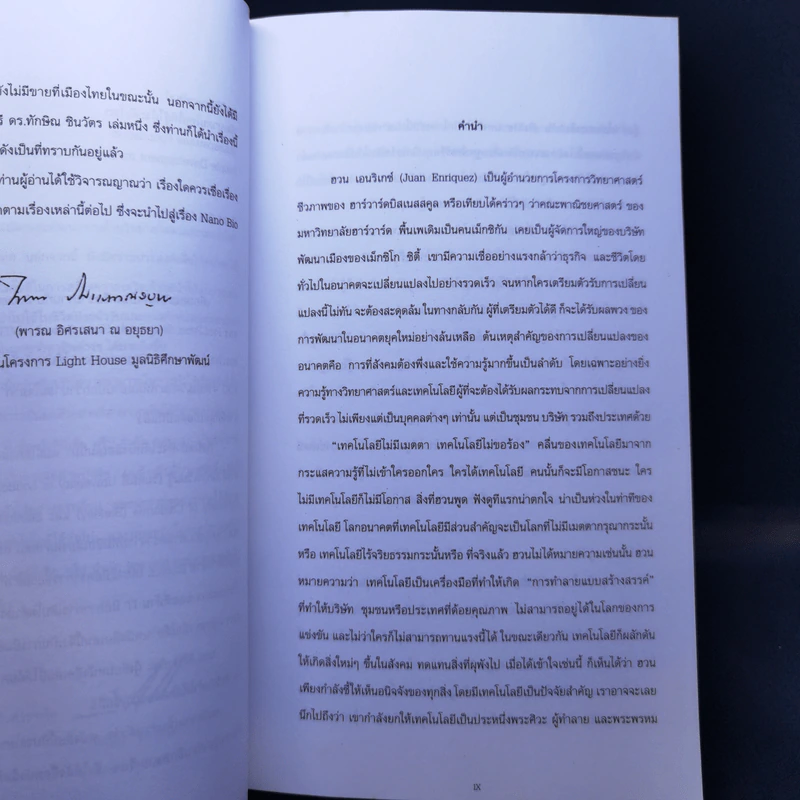 ยังไม่มีขายที่เมืองไทยในขณะนั้น นอกจากนี้ยังได้มี
ดร.ทักษิณ ชินวัตร เล่มหนึ่ง ซึ่งท่านก็ได้นำเรื่องนี้
ดังเป็นที่ทราบกันอยู่แล้ว
ท่านผู้อ่านได้ใช้วิจารณญาณว่า เรื่องใดควรเชื่อเรื่อง
ตามเรื่องเหล่านี้ต่อไป ซึ่งจะนำไปสู่เรื่อง Nano Bio
(พารณ อิศรเสนา ณ อยุธยา)
นโครงการ Light House มูลนิธิศึกษาพัฒน์
คำนำ
ฮวน เอนริเกซ์ (Juan Enriquez) เป็นผู้อำนวยการโครงการวิทยาศาสตร์
ชีวภาพของ ฮาร์วาร์ดบิสเนสสคูล หรือเทียบได้คร่าวๆ ว่าคณะพาณิชยศาสตร์ ของ
มหาวิทยาลัยฮาร์วาร์ด พื้นเพเดิมเป็นคนเม็กซิกัน เคยเป็นผู้จัดการใหญ่ของบริษัท
พัฒนาเมืองของเม็กซิโก ซิตี้ เขามีความเชื่ออย่างแรงกล้าว่าธุรกิจ และชีวิตโดย
ทั่วไปในอนาคตจะเปลี่ยนแปลงไปอย่างรวดเร็ว จนหากใครเตรียมตัวรับการเปลี่ยน
แปลงนี้ไม่ทัน จะต้องสะดุดล้ม ในทางกลับกัน ผู้ที่เตรียมตัวได้ดี ก็จะได้รับผลพวง ของ
การพัฒนาในอนาคตยุคใหม่อย่างล้นเหลือ ต้นเหตุสำคัญของการเปลี่ยนแปลงของ
อนาคตคือ การที่สังคมต้องพึ่งและใช้ความรู้มากขึ้นเป็นลำดับ โดยเฉพาะอย่างยิ่ง
ความรู้ทางวิทยาศาสตร์และเทคโนโลยีผู้ที่จะต้องได้รับผลกระทบจากการเปลี่ยนแปลง
ที่รวดเร็ว ไม่เพียงแต่เป็นบุคคลต่างๆ เท่านั้น แต่เป็นชุมชน บริษัท รวมถึงประเทศด้วย
“เทคโนโลยีไม่มีเมตตา เทคโนโลยีไม่ขอร้อง” คลื่นของเทคโนโลยีมาจาก
กระแสความรู้ที่ไม่เข้าใครออกใคร ใครได้เทคโนโลยี คนนั้นก็จะมีโอกาสชนะ ใคร
ไม่มีเทคโนโลยีก็ไม่มีโอกาส สิ่งที่ฮวนพูด ฟังดูทีแรกน่าตกใจ น่าเป็นห่วงในท่าทีของ
เทคโนโลยี โลกอนาคตที่เทคโนโลยีมีส่วนสำคัญจะเป็นโลกที่ไม่มีเมตตากรุณากระนั้น
หรือ เทคโนโลยีไร้จริยธรรมกระนั้นหรือ ที่จริงแล้ว ฮวนไม่ได้หมายความเช่นนั้น ฮวน
หมายความว่า เทคโนโลยีเป็นเครื่องมือที่ทำให้เกิด “การทำลายแบบสร้างสรรค์”
ที่ทำให้บริษัท ชุมชนหรือประเทศที่ด้อยคุณภาพ ไม่สามารถอยู่ได้ในโลกของการ
แข่งขัน และไม่ว่าใครก็ไม่สามารถทานแรงนี้ได้ ในขณะเดียวกัน เทคโนโลยีก็ผลักดัน
ให้เกิดสิ่งใหม่ๆ ขึ้นในสังคม ทดแทนสิ่งที่ผุพังไป เมื่อได้เข้าใจเช่นนี้ ก็เห็นได้ว่า ฮวน
เพียงกำลังชี้ให้เห็นอนิจจังของทุกสิ่ง โดยมีเทคโนโลยีเป็นปัจจัยสำคัญ เราอาจจะเลย
นึกไปถึงว่า เขากำลังยกให้เทคโนโลยีเป็นประหนึ่งพระศิวะ ผู้ทำลาย และพระพรหม
IX